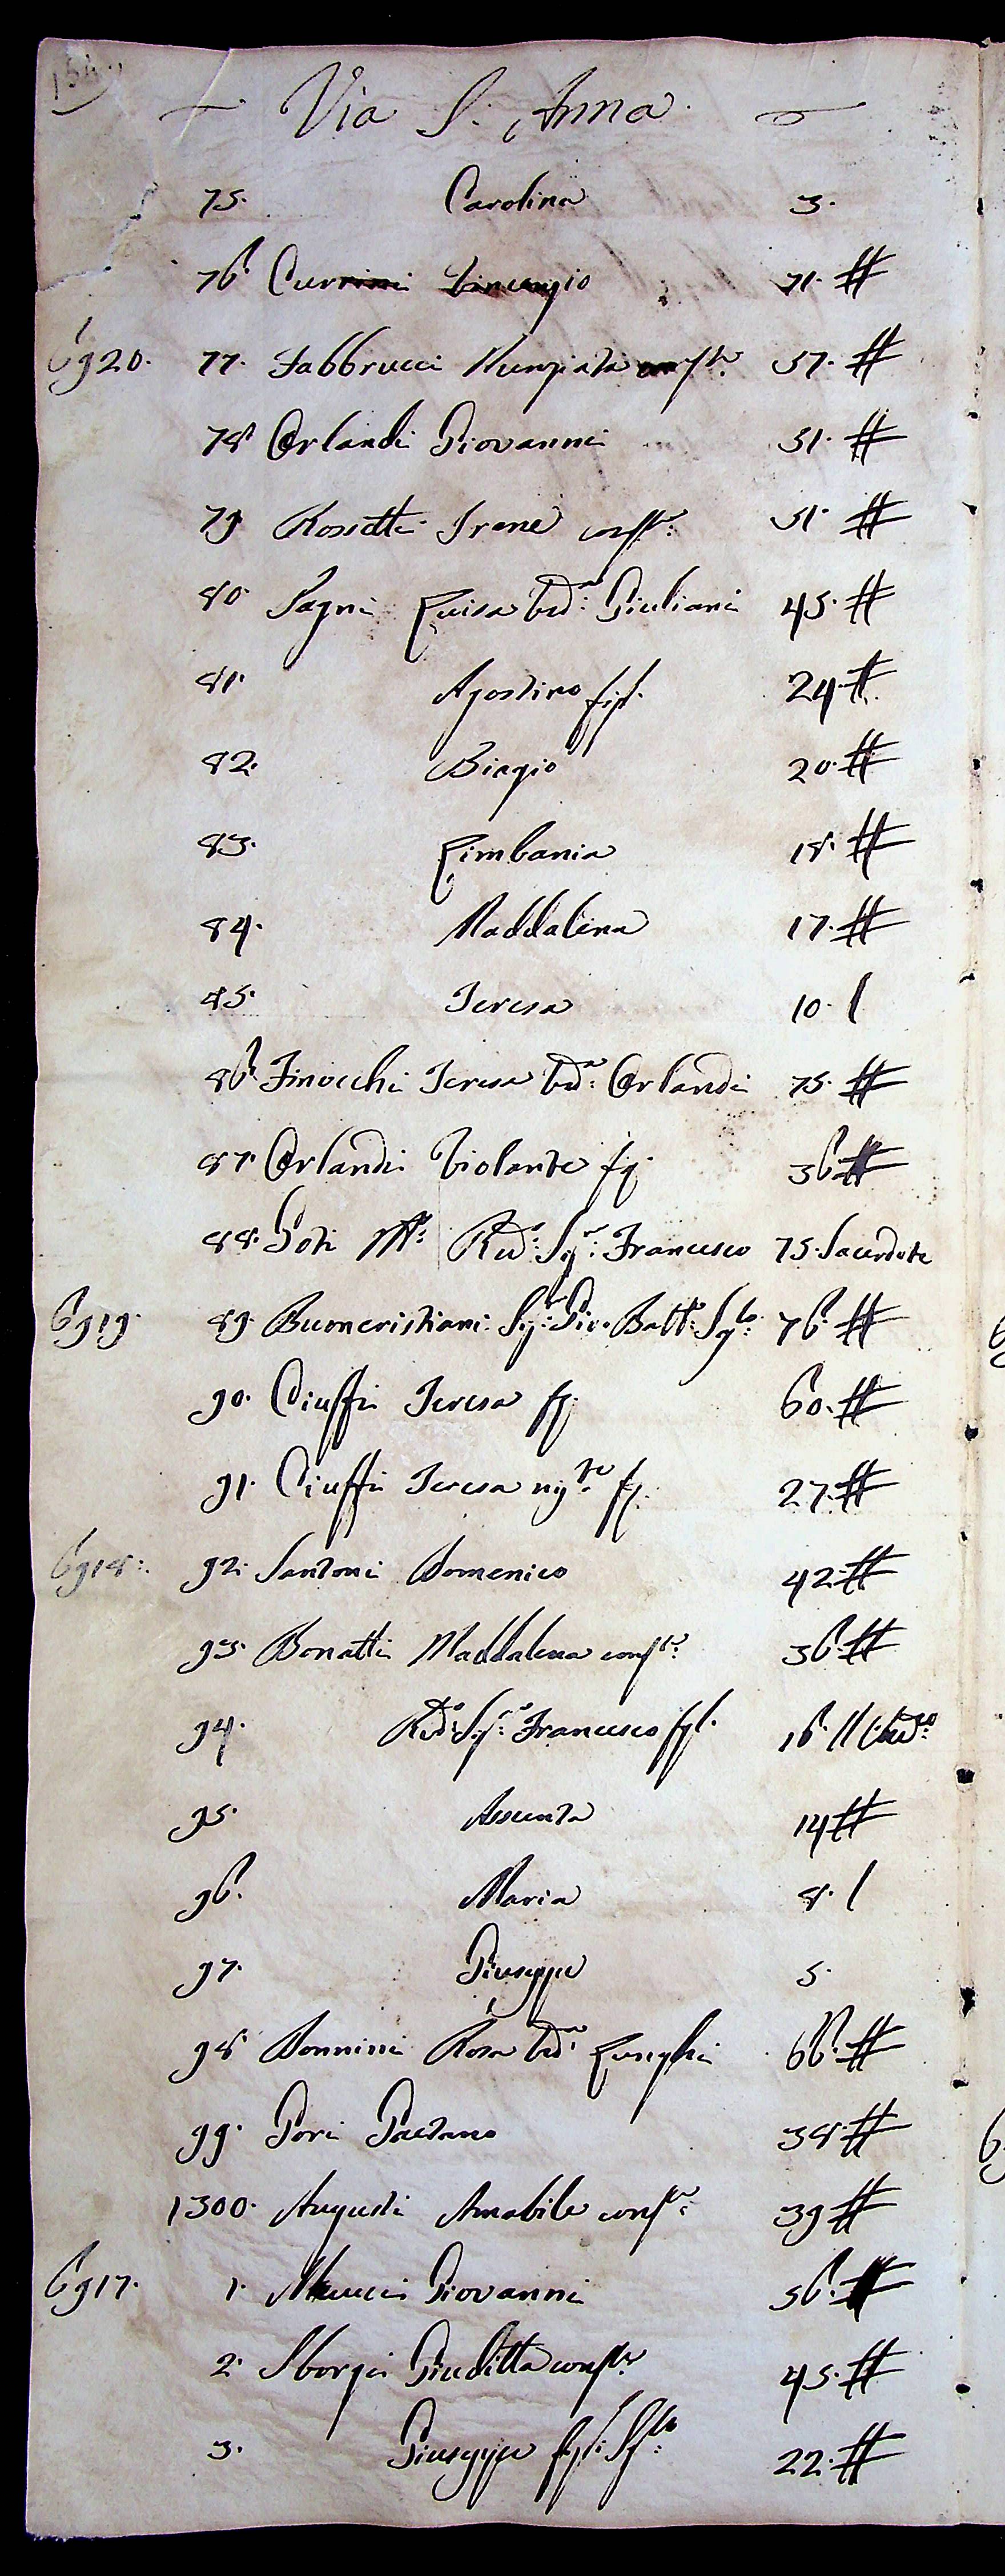 154.
Via S. Anna
75. Carolina 3.
76 Currini Vincenzio 71. #
6920. 77. Fabbrucci Nunziata conste. 57. #
78 Orlandi Giovanni 51. #
79 Rossetti Irene conste: 51. #
80. Pagni Luisa Vda: Giuliani 45. #
81. Agostino figl. 24. #
82. Biagio 20. #
83. Limbania 18. #
84. Maddalena 17. #
85. Teresa 10. /
86. Finocchi Teresa Vda: Orlandi 75. #
87. Orlandi Violante fg. 36. #
88. Poti Mto: Rdo: Sigr: Francesco 75. Sacerdote
6919. 89. Buoncristiani Sigr: Gio. Batt: Sglo: 76. #
90. Ciuffi Teresa fg. 60. #
91. Ciuffi Teresa nipte. fg. 27. #
6918. 92. Santoni Domenico 42. #
93. Bonatti Maddalena conste: 36. #
94. Rdo: Sigr: Francesco figl. 16. // Chco:
95. Assunta 14 #
96. Maria 8. /
97. Giuseppe 5.
98 Bonnini Rosa Vda: Lunghi 66. #
99. Gori Gaetano 38. #
1300. Augusti Amabile conste: 39 #
6917. 1. Mucci Giovanni 56. #
2. Sborgi Giuditta conste: 45. #
3. Giuseppe figl: Sglo: 22. #